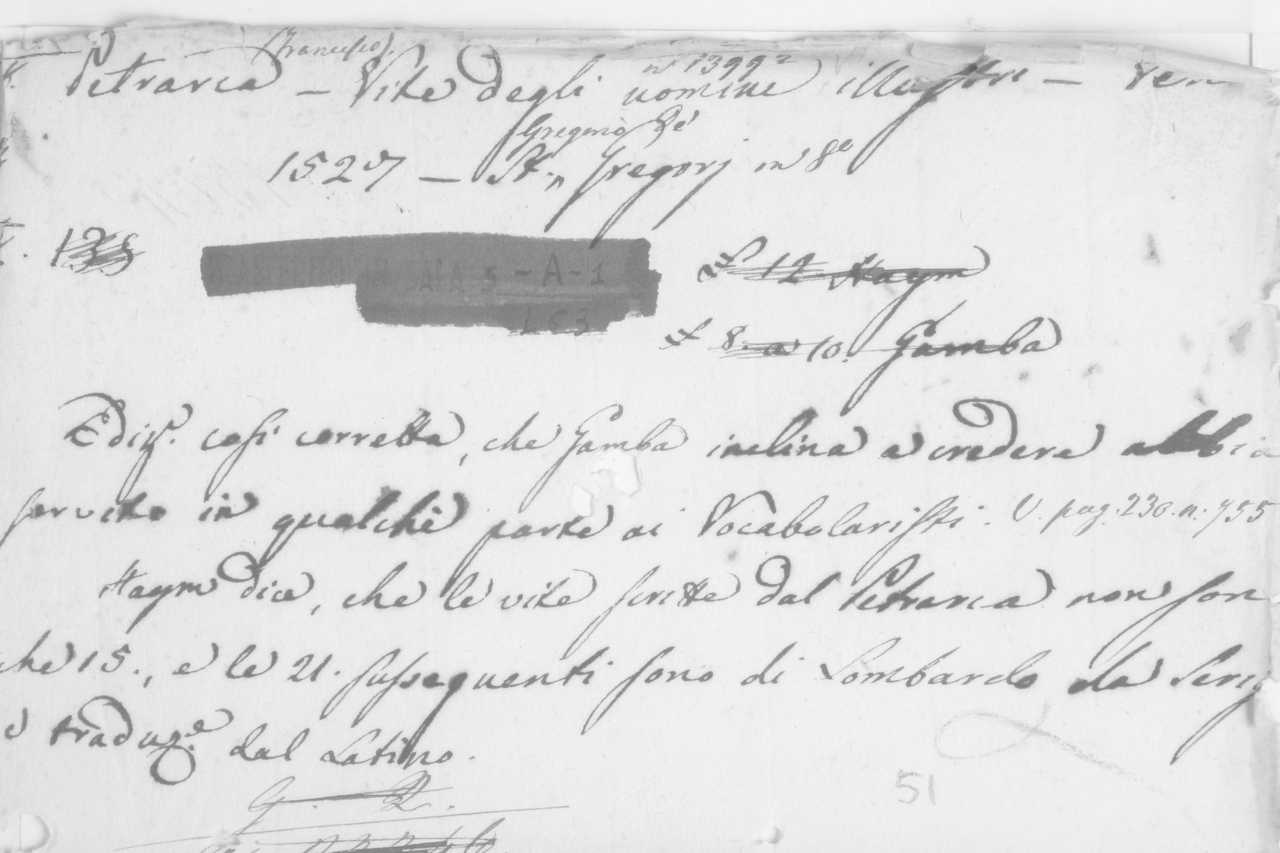 (Francesco).
Petrarca – Vite degli uomini illustri – Ven
n° 1399²
Gregorio de'
1527 – St. Gregorj in 8°
SALA 5 - A - 1
L 53
£ 12 Haym
£ 8. a 10. Gamba
Ediz.e così corretta, che Gamba inclina a credere abbia
servito in qualche parte ai Vocabolaristi. V. pag. 230. n. 755
Haym dice, che le vite scritte dal Petrarca non son
che 15., e le 21. susseguenti sono di Lombardo da Serig
è traduz.e dal Latino.
51